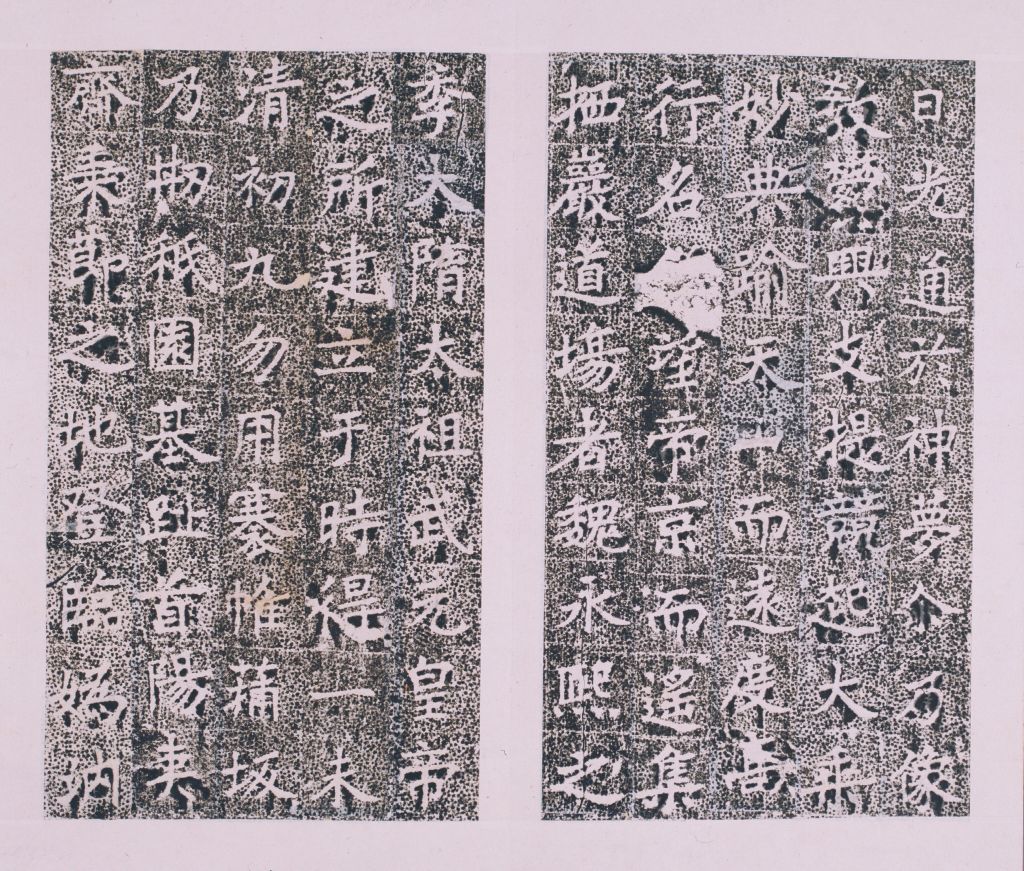 日光通於神夢尒乃像
教欝興支提競起大乗
妙典喻天一而遠展善
行名望帝京而遥集
栖巖道場者魏永熙之
季大隋太祖武元皇帝
之所建立于時得一未
清初九勿用褰帷蒲坂
乃剏祇園基趾首陽夷
齊秉節之地登臨嬀汭